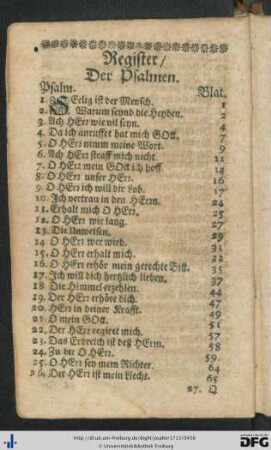 Register/
Der Psalmen.
Psalm. Blat.
1. Seelig ist der Mensch. 1
2. Warum seynd die Heyden. 2
3. Ach HErr wie vil seyn. 4
4. Da ich anruffet hat mich GOtt.
5. O HErr nimm meine Wort. 7
6. Ach HErr straff mich nicht. 9
7. O HErr mein GOtt ich hoff. 11
8. O HErr unser HErr. 14
9. O HErr ich will dir Lob. 16
10. Ich vertrau in den HErrn.
11. Erhalt mich O HErr.
12. O HErr wie lang. 25
13. Die Unweisen. 27
14. O HErr wer wird. 29
15. O HErr erhalt mich.
16. O HErr erhör mein gerechte Bitt. 35
17. Ich will dich hertzlich lieben. 37
18. Die Himmel erzehlen. 44
19. Der HErr erhöre dich. 47
20. HErr in deiner Krafft. 49
21. O mein GOtt. 51
22. Der HErr regiret mich. 57
23. Das Erdreich ist deß HErrn. 58
24. Zu dir O HErr. 59.
25. O HErr sey mein Richter. 64
26. Der HErr ist mein Liecht. 65
27. O
http://dl.ub.uni-freiburg.de/diglit/psalter1713/0456
© Universitätsbibliothek Freiburg
gefördert durch die DFG